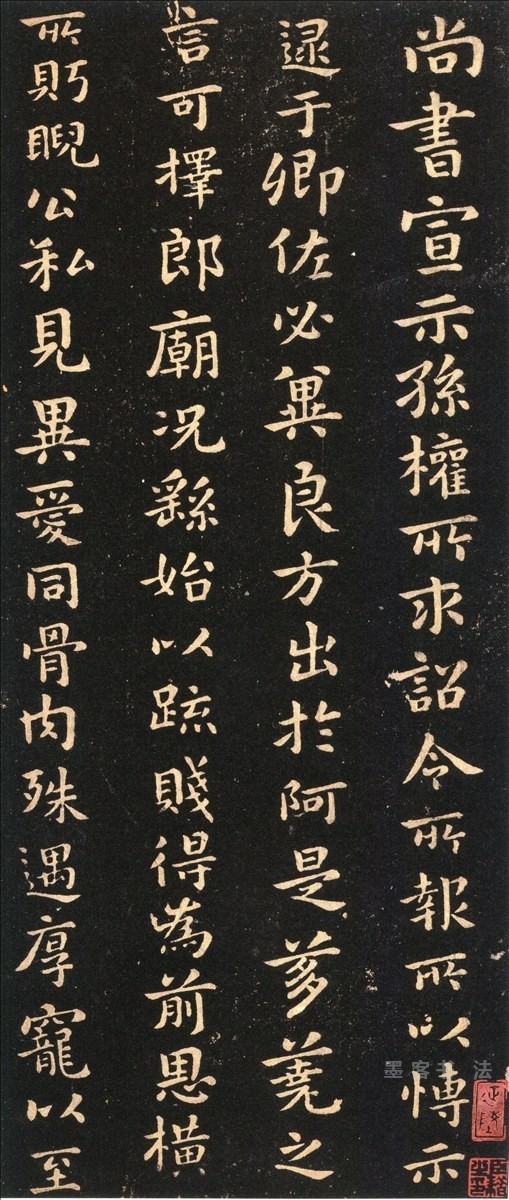 尚書宣示孫權所求詔令所報所以愽示
逮于卿佐必冀良方出於阿是芻蕘之
言可擇郎廟况繇始以疏賤得為前恩橫
所眄睨公私見異愛同骨肉殊遇厚寵以至
墨客书法